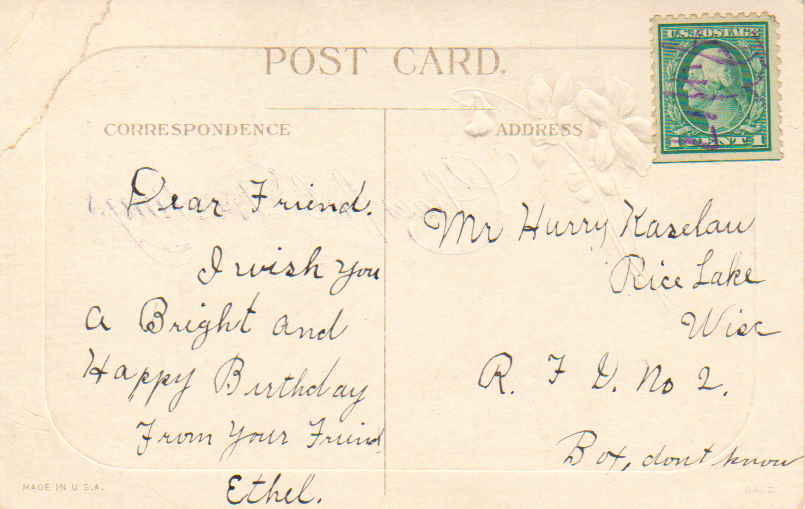 POST CARD.
CORRESPONDENCE
ADDRESS
U.S. POSTAGE
1 CENT 1
Dear Friend.
I wish you
a Bright and
Happy Birthday
From Your Friend
Ethel.
Mr Hurry Kaselau
Rice Lake
Wisc
R. F. D. No 2.
Box, dont know
MADE IN U.S.A.